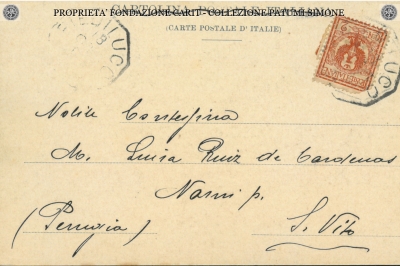 PROPRIETA' FONDAZIONE CARIT - COLLEZIONE PATUMI SIMONE
CARTOLINA POSTALE ITALIANA
(CARTE POSTALE D'ITALIE)
Nobile Contessina
M. Luisa Ruiz de Cardenas
Narni p.
S. Vito
(Perugia)